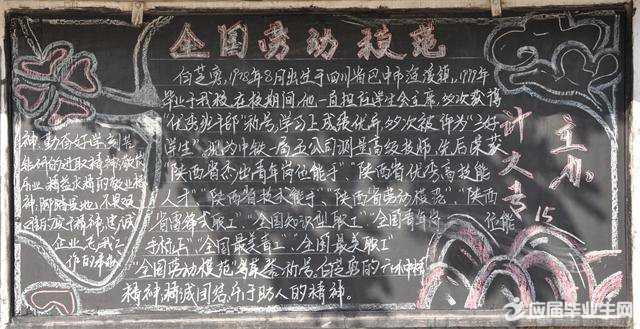 全国劳动模范
白芝勇,1978年8月出生于四川省巴中市 1999年
毕业于我校,在校期间,他一直担任学生会主席,多次获得
"优秀班干部"称号,学习上成绩优异,多次被评为"三好
学生",他为中铁一局五公司测量高级技师,先后荣获
"陕西省杰出青年岗位能手"、"陕西省优秀高技能
人才"、"陕西省技术能手"、"陕西省劳动模范"、"陕西
省雷锋式职工"、"全国知识型职工"、"全国青年岗位能
手标兵"、"全国最美青工、全国最美职工"
"全国劳动模范"等 称号,白芝勇的
精神,精诚团结,乐于助人的精神。
神,勤奋好学,刻苦
钻研的进取精神,敬岗
乐业,精益求精的敬业精
神,脚踏实地、不畏艰
难的实干精神,忠诚
企业,忘我工
作的奉献
主办
计文专
15
应届毕业生网